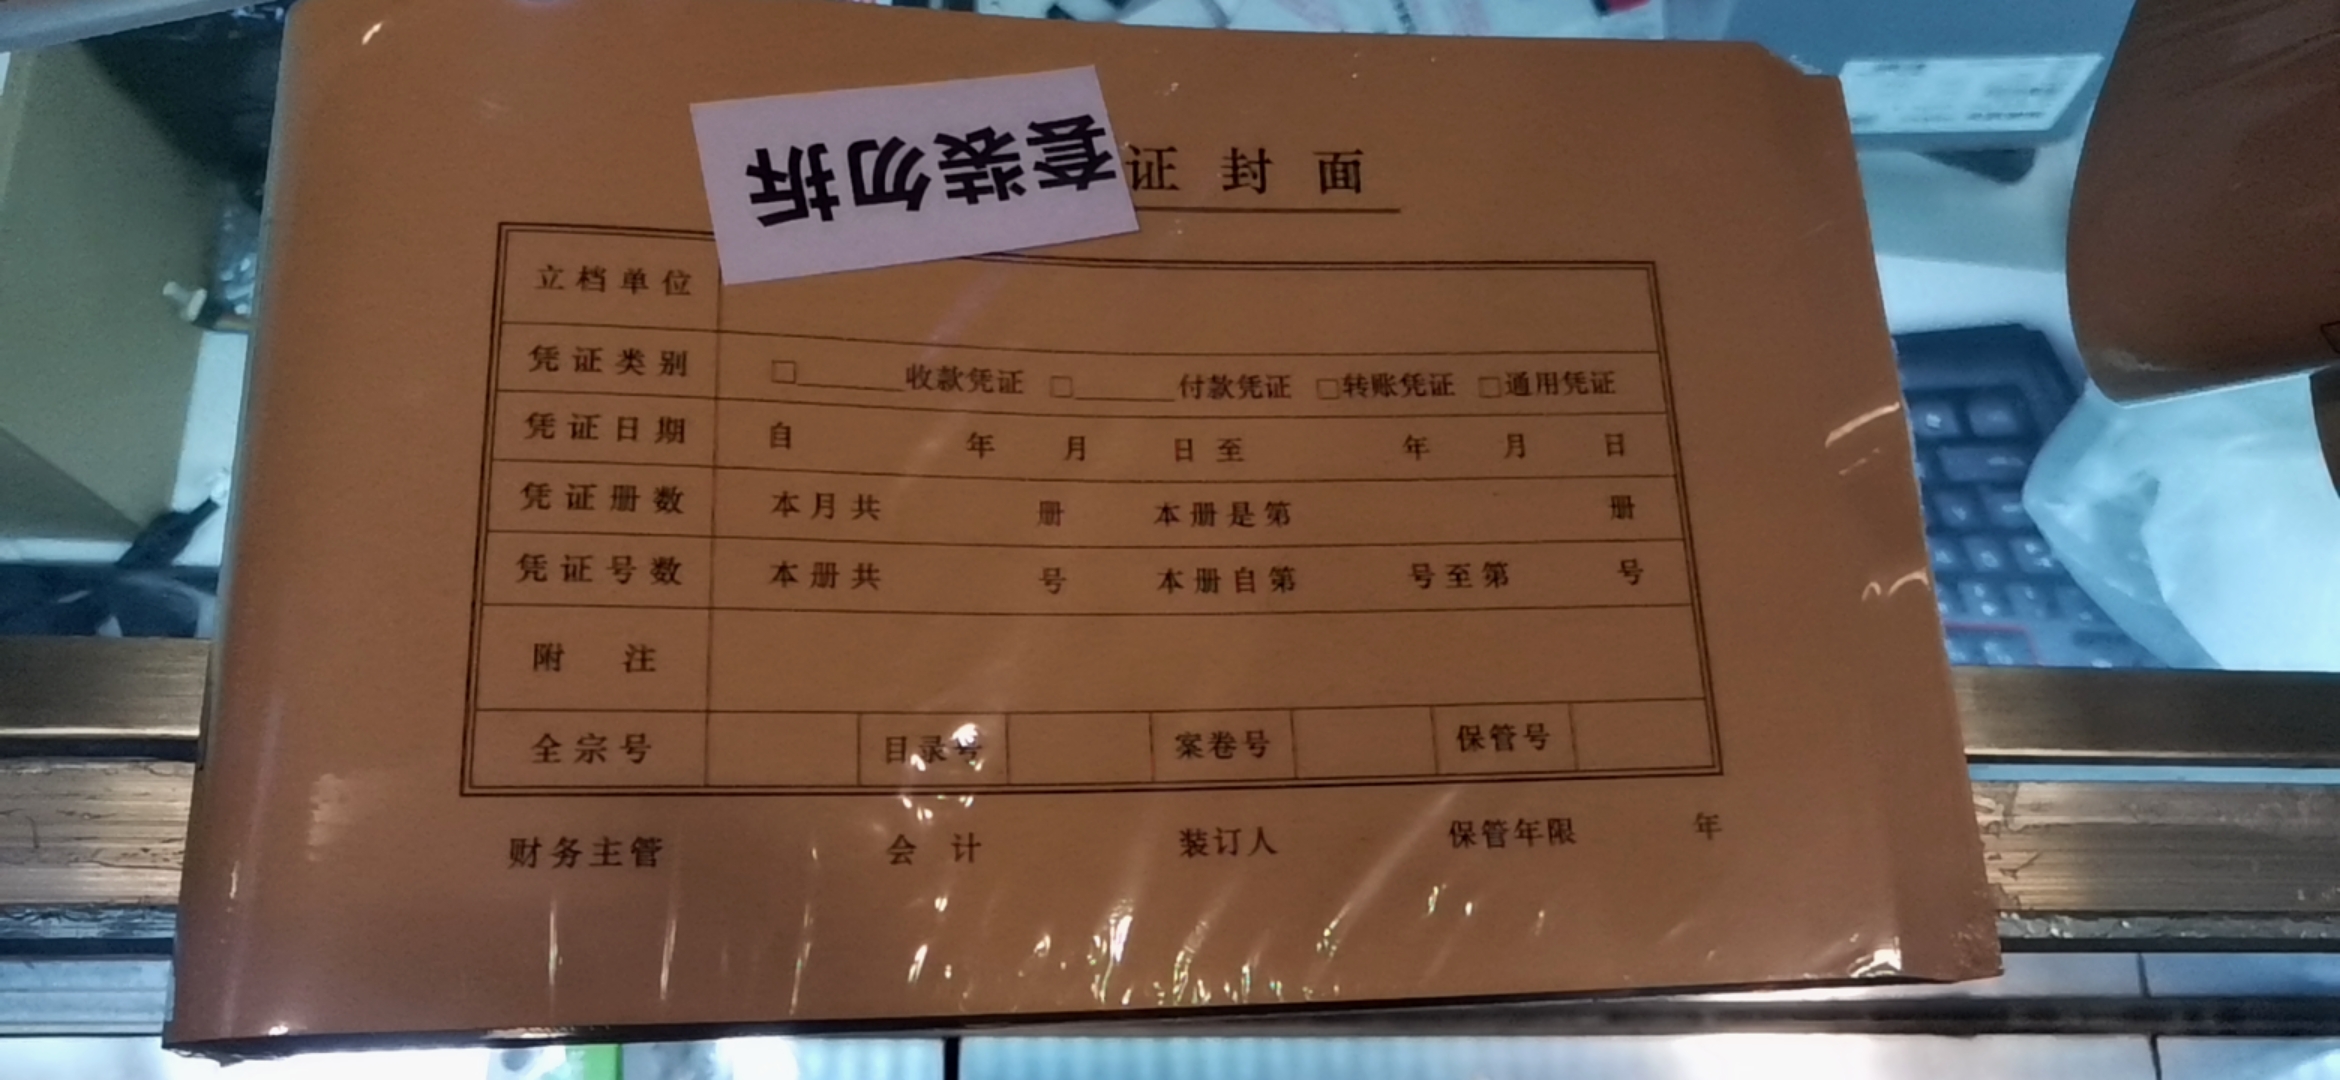 套装勿拆
证封面
立档单位
凭证类别 □______收款凭证 □______付款凭证 □转账凭证 □通用凭证
凭证日期 自 年 月 日至 年 月 日
凭证册数 本月共 册 本册是第 册
凭证号数 本册共 号 本册自第 号至第 号
附 注
全宗号 目录号 案卷号 保管号
财务主管 会 计 装订人 保管年限 年